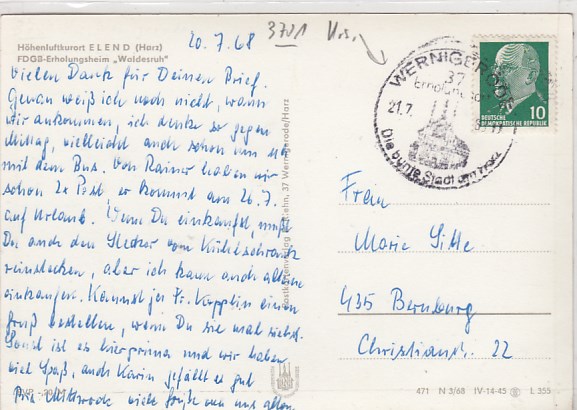 20.7.68
3701
Höhenluftkurort ELEND (Harz)
FDGB-Erholungsheim „Waldesruh"
Vielen Dank für Deinen Brief.
Genau weiß ich noch nicht, wann
wir ankommen, ich denke so gegen
Mittag, vielleicht auch schon um
mit dem Bus. Von Rainer haben wir
schon 2x Post, er kommt am 26.7.
auf Urlaub. Wenn Du einkaufst, mußt
Du auch den Stecker vom Kühlschrank
reinstecken, aber ich kann auch allein
einkaufen. Kannst ja Fr. einen
Gruß bestellen, wenn Du sie mal siehst.
Sonst ist es hier prima und wir haben
viel Spaß, auch Karin gefällt es gut
Bis Mittwoch viele Grüße von uns allen
37 Wernigerode/Harz
WERNIGERODE
37
21.7.
Die bunte Stadt am Harz
10
DEUTSCHE
DEMOKRATISCHE REPUBLIK
Frau
Marie
435 Bernburg
22
471 N 3/68 IV-14-45 L 355